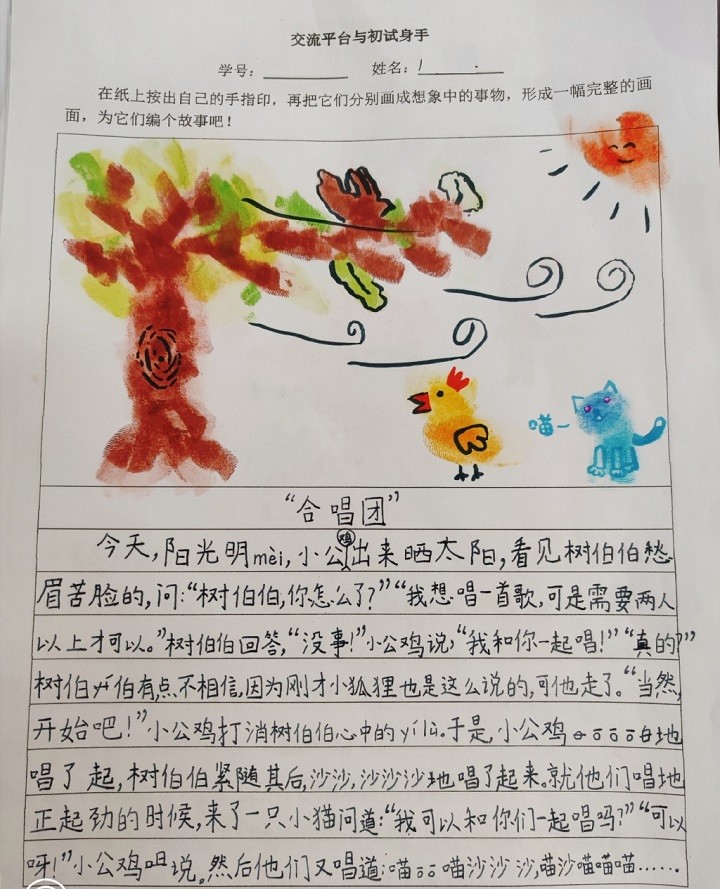 交流平台与初试身手
学号： 姓名：
在纸上按出自己的手指印，再把它们分别画成想象中的事物，形成一幅完整的画
面，为它们编个故事吧！
喵一
“合唱团”
今天，阳光明mèi，小公鸡出来晒太阳，看见树伯伯愁
眉苦脸的，问：“树伯伯，你怎么了？”“我想唱一首歌，可是需要两人
以上才可以。”树伯伯回答，“没事！”小公鸡说，“我和你一起唱！”“真的？”
树伯伯有点不相信，因为刚才小狐狸也是这么说的，可他走了。“当然，
开始吧！”小公鸡打消树伯伯心中的yí lǜ。于是，小公鸡地
唱了起，树伯伯紧随其后，沙沙，沙沙沙地唱了起来。就他们唱地
正起劲的时候，来了一只小猫问道：“我可以和你们一起唱吗？”“可以
呀！”小公鸡说。然后他们又唱道：喵喵沙沙沙，喵沙喵喵喵……